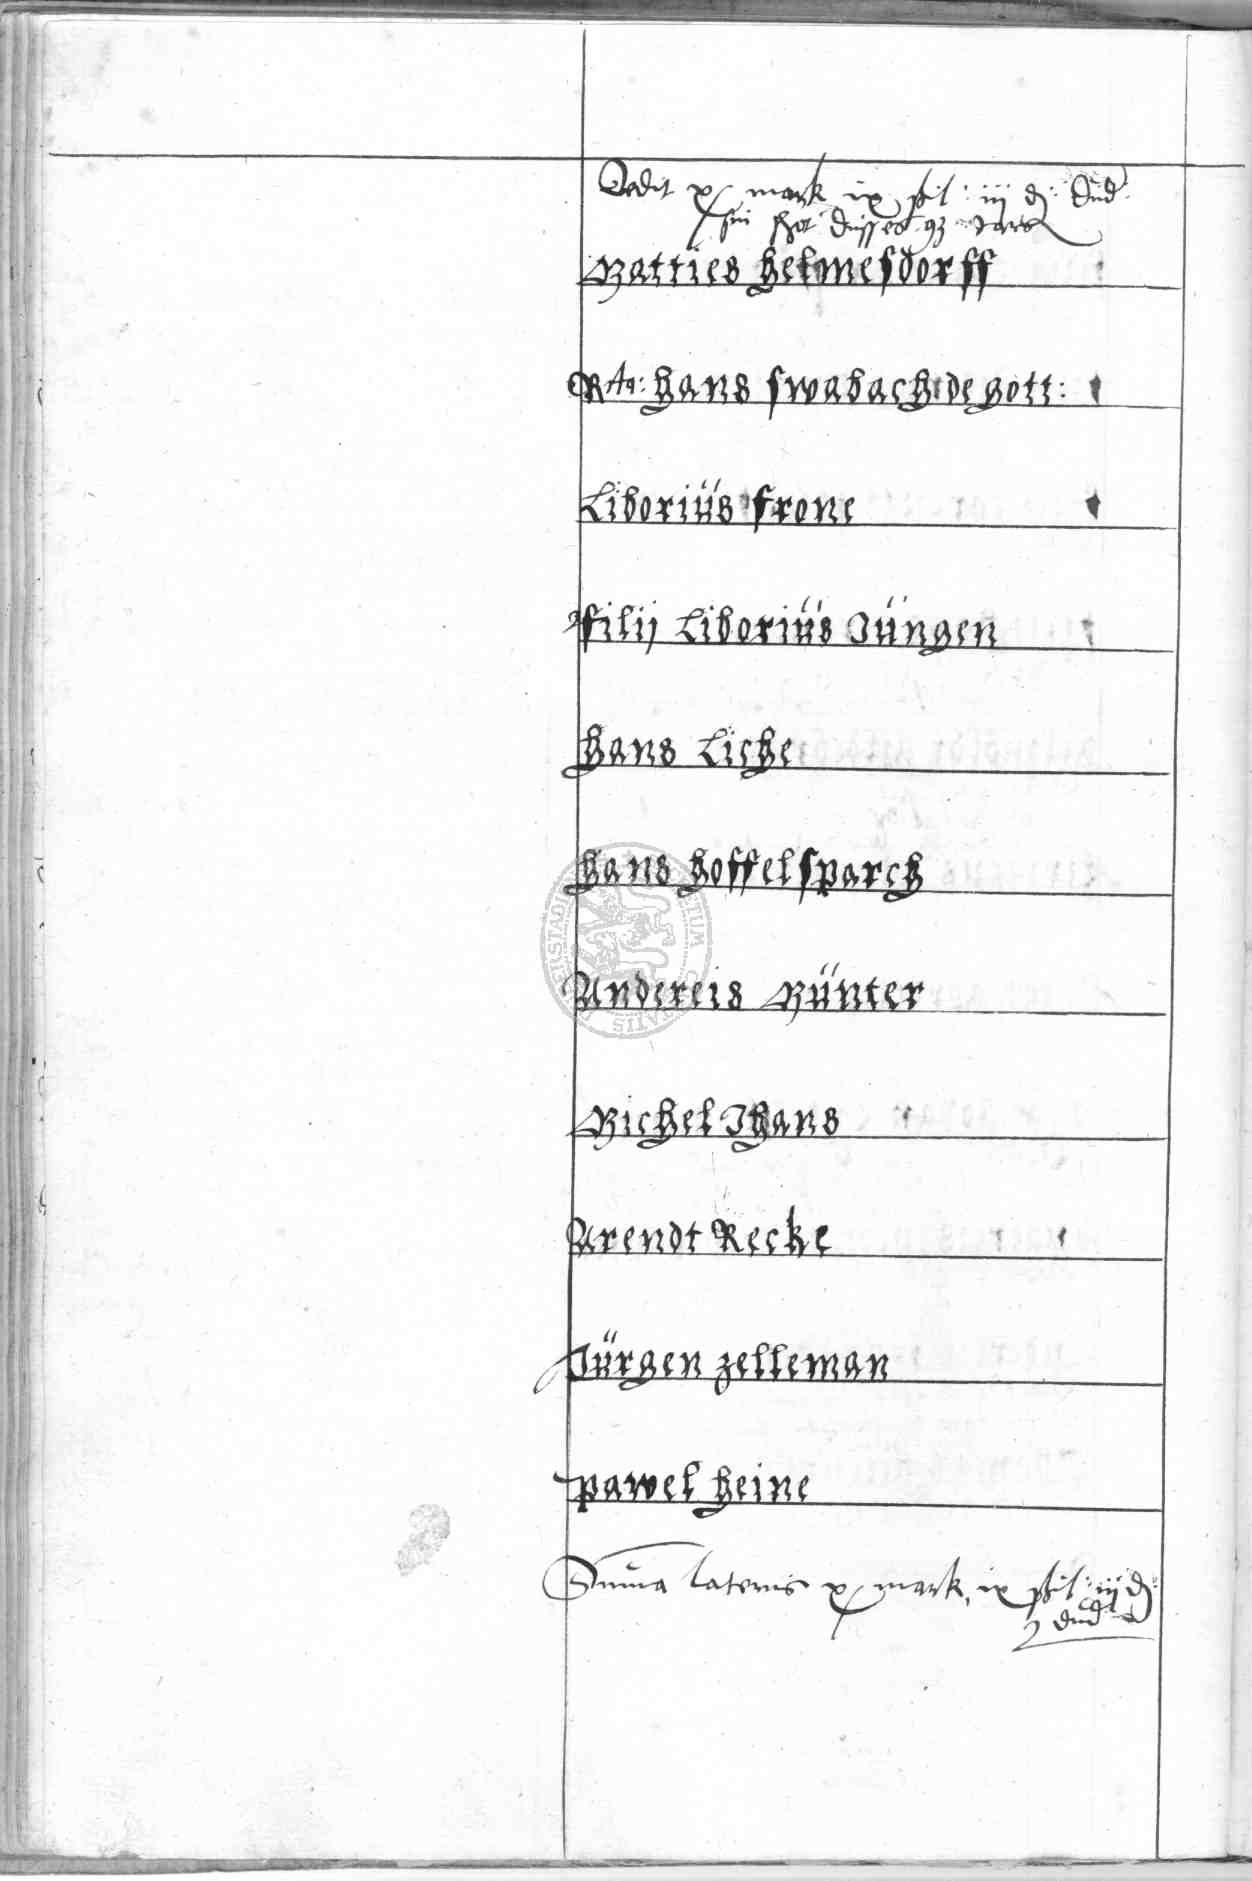 Dedit x mark ix ßil: iij d: Dud
sin schot dusses 93 Jares
Matties Helmesdorff
Rta: Hans Swabach de Gott:
Liborius Frone
Filij Liborius Jungen
Hans Liche
Hans Hoffelsparch
Andereis Munter
Michel Jhans
Arendt Recke
Jürgen Zelleman
Pawel Heine
Summa lateris x mark, ix ßil: iij d:
dud